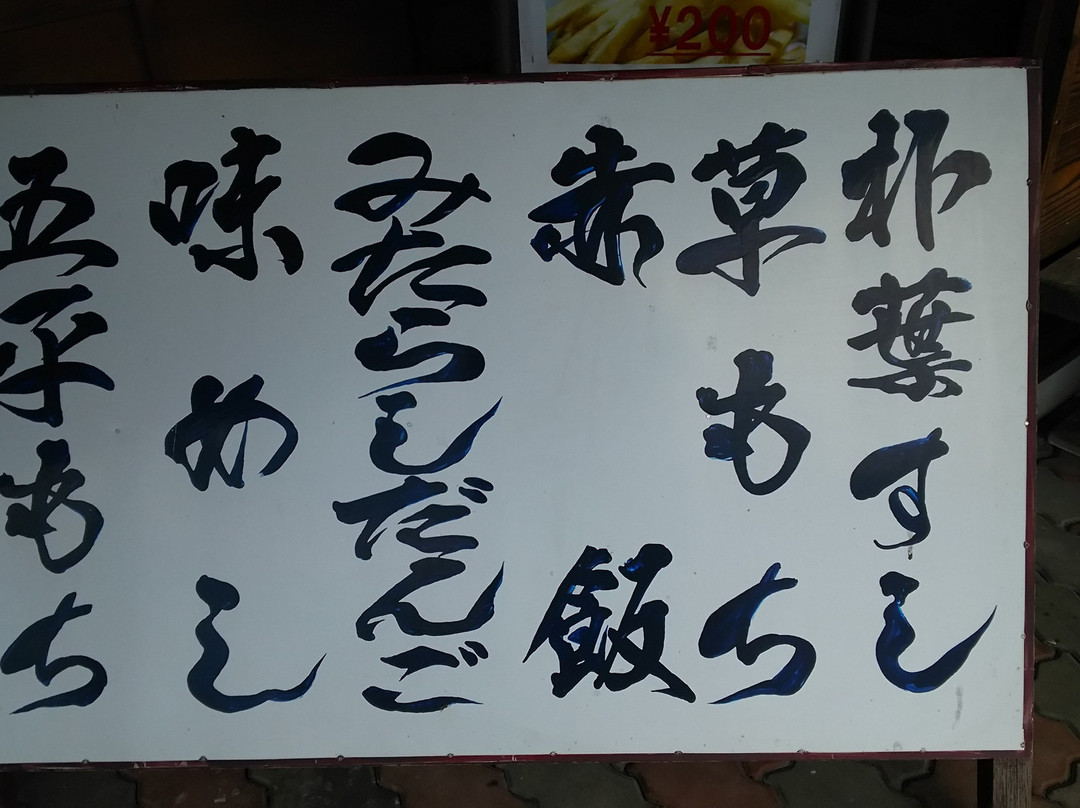 ¥200
朴葉すし
草もち
赤飯
みたらしだんご
味めし
五平もち